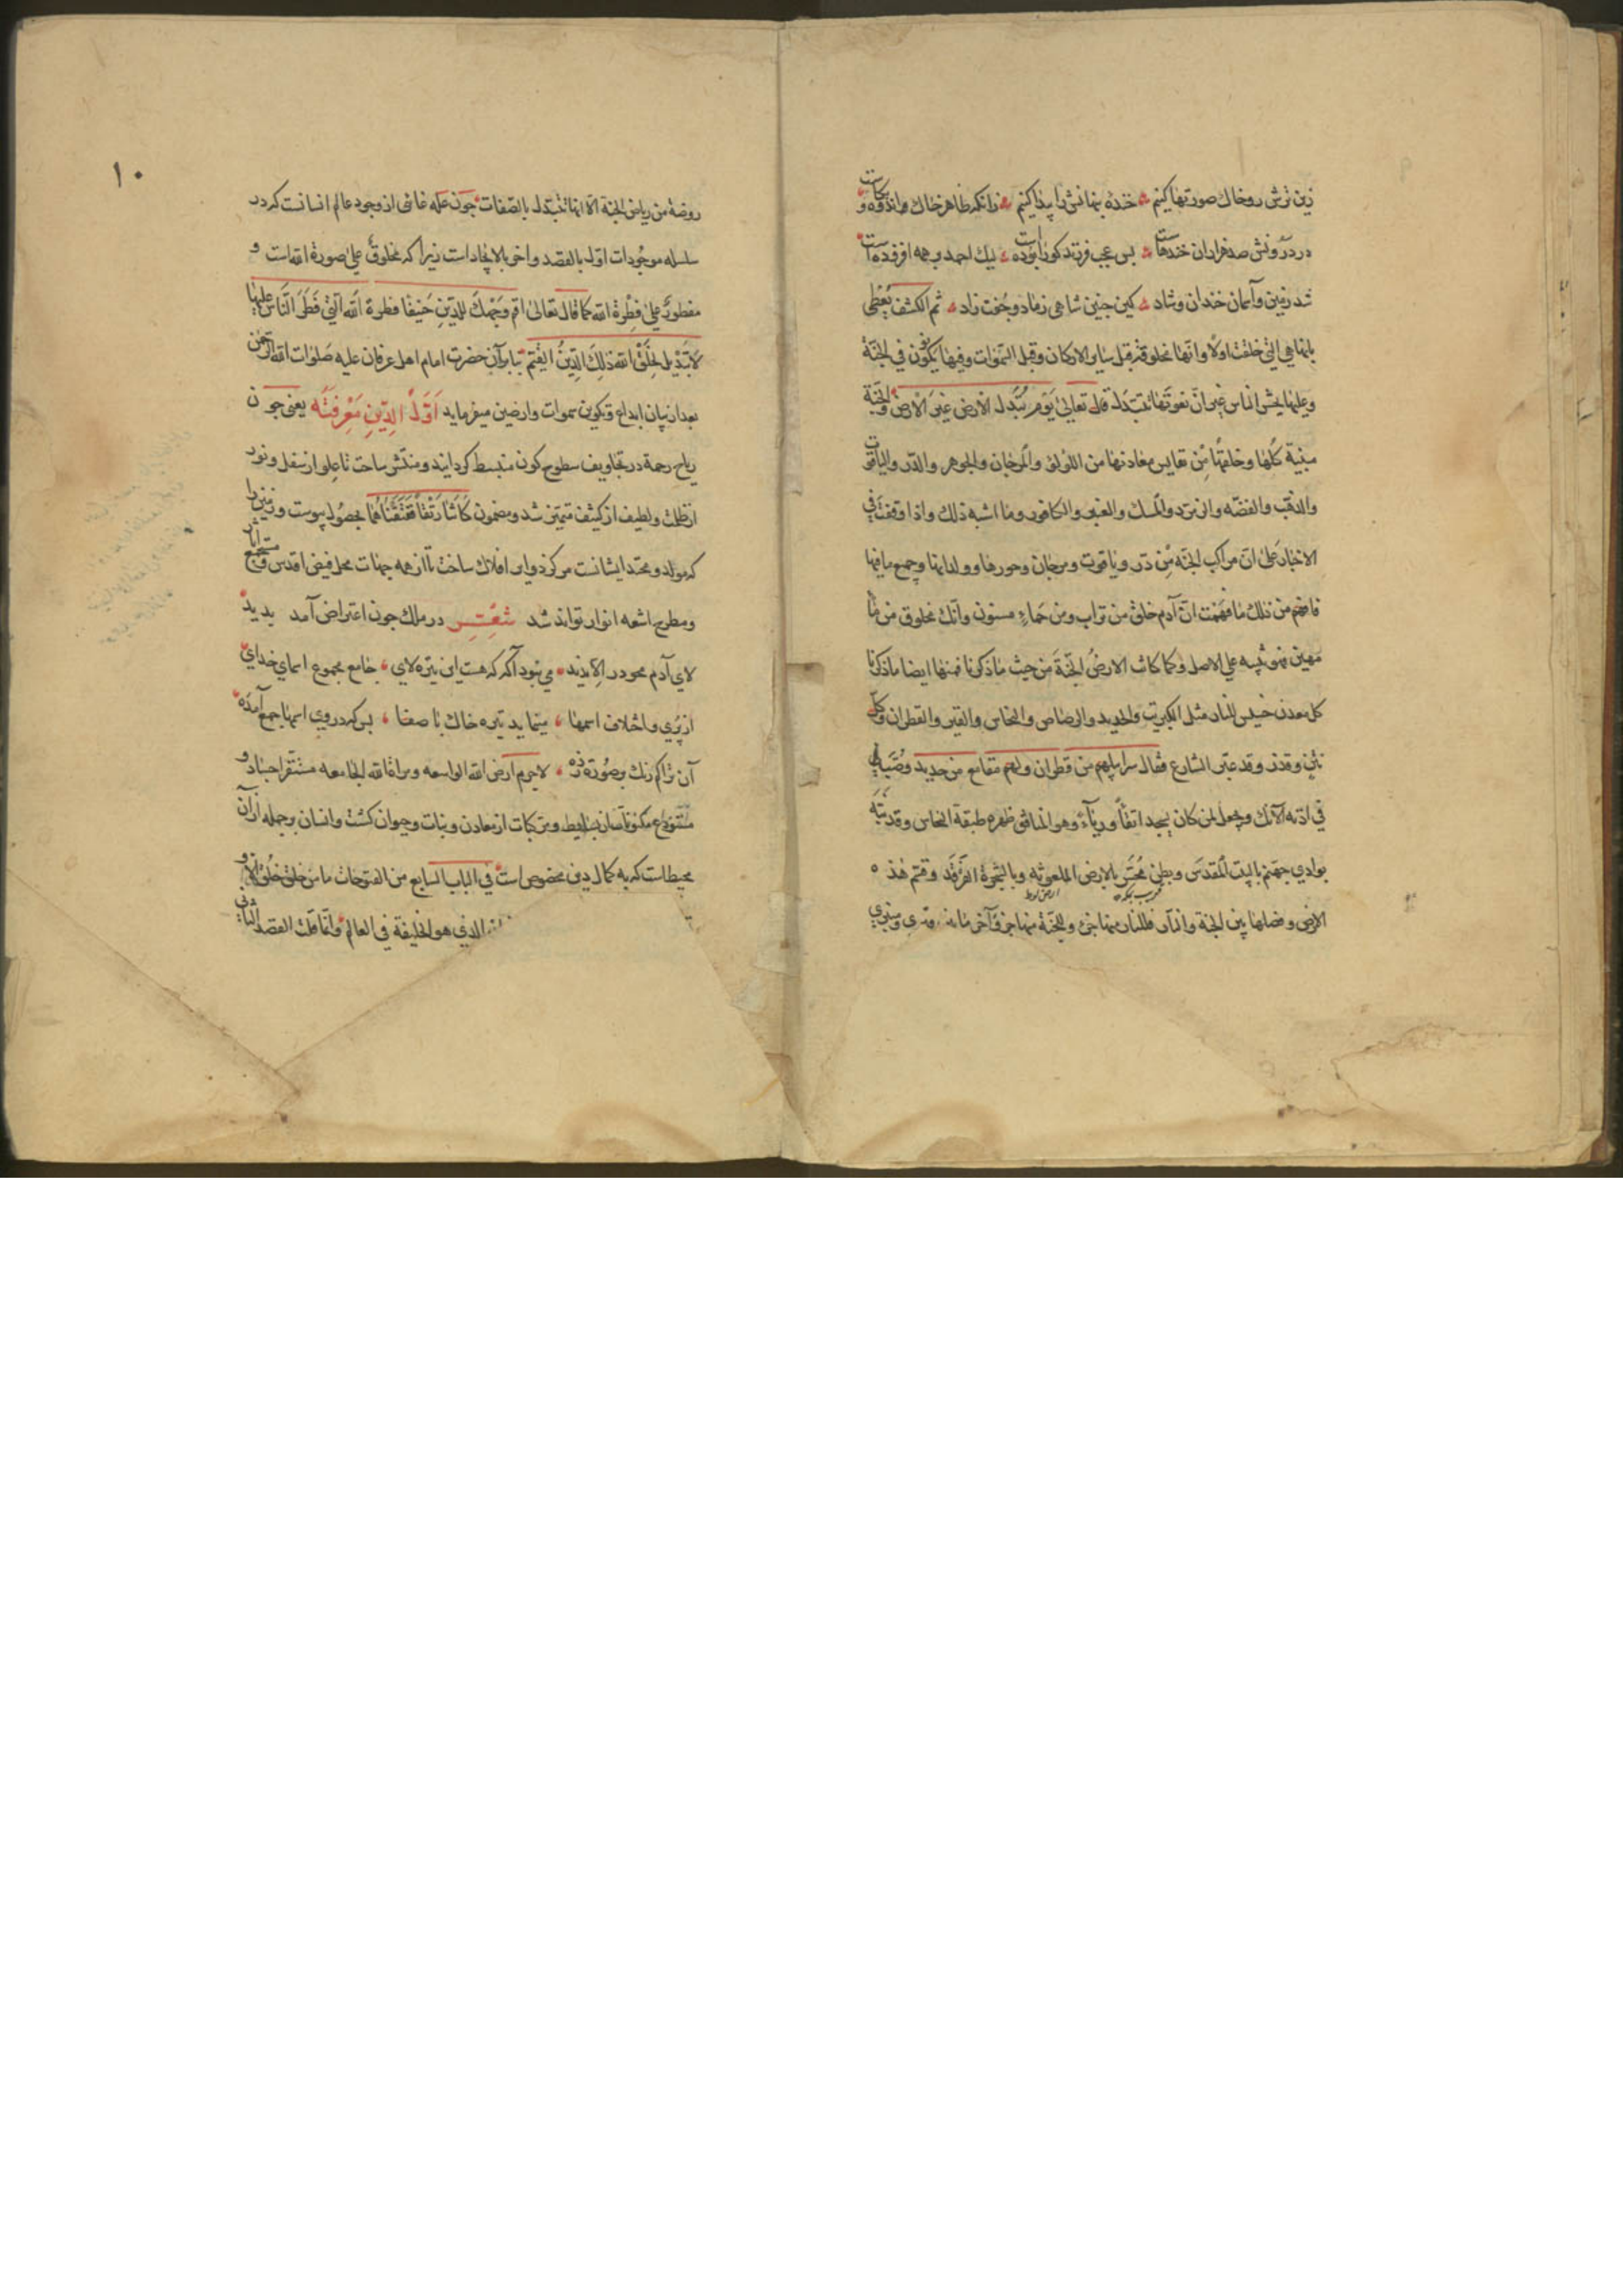 زین ترش رو خاك صورتها کنیم خندهٔ پنهانش را پیدا کنیم زانکه ظاهر خاك و اندوه و بکاست
در درونش صد هزاران خندهاست بس عجب فرزند کورا بوده است لیك احمد بر همه افزوده است
شد زمین و آسمان خندان و شاد کین چنین شاهی زما دو جفت زاد ثم الکشف یعطی
بانها هی التی خلقت اولا وانها مخلوقة قبل سایر الارکان وقبل السموات وفیها یکون فی الجنة
وعلیها یحشر الناس غیر ان نعوتها تتبدل قال تعالی یوم تبدل الارض غیر الارض والجنة
مبنیة کلها وخلقها من نفایس معادنها من اللؤلؤ والمرجان والجوهر والدر والیاقوت
والذهب والفضه والزمرد والمسك والعنبر والکافور وما اشبه ذلك واذا وقفت فی
الاخبار علی ان مراکب الجنه من در ویاقوت ومرجان وحورها وولدانها وجمیع ما فیها
فافهم من ذلك ما فهمت ان آدم خلق من تراب ومن حماء مسنون وانك مخلوق من ماء
مهین فهو تنبیه علی الاصل وکما کانت الارض الجنة من حیث ما ذکرنا فمنها ایضا ما ذکرنا
کل معدن خسیس للنار مثل الکبریت والحدید والرصاص والنحاس والقیر والقطران وکل
نتن وقذر وقد عبر الشارع فقال سرابیلهم من قطران ولهم مقامع من حدید وصب
فی اذنه الآنك ویجعل لمن کان یسجد اتقاً وریآءً وهو المنافق ظهره طبقة النحاس وقد نبّه
بوادی جهنم بالبیت المقدس وبطن محسر بالارض الملعونه وبالشجرة الغرقد وقسم هذه
الارض وفضلها بین الجنة والنار فللنار منها جزء وللجنة منها جزء وآخر ما بین قبری ومنبری
١٠
روضة من ریاض الجنة الا انها تتبدل بالصفات چون علّه غائی از وجود عالم انسانست که در
سلسله موجودات اول بالقصد واخر بالایجاد است زیرا که مخلوق علی صورة الله است و
مفطور علی فطرة الله کما قال تعالی اقم وجهك للدین حنیفا فطرة الله التی فطر الناس علیها
لا تبدیل لخلق الله ذلك الدین القیم بنابر آن حضرت امام اهل عرفان علیه صلوات الله الرحمن
بعد از بیان ابداع وتکوین سموات وارضین میفرماید اوّل الدین معرفته یعنی چون
ریاح رحمة در تجاویف سطوح کون منبسط گردانید ومنکشر ساخت تا علو از سفل ونور
از ظلمت ولطیف از کثیف متمیز شد ومضمون کانتا رتقاً ففتقناهما بحصول پیوست وزمین را
که مولد ومحتد ایشانست مرکز دوایر افلاك ساخت تا از همه جهات محل فیض اقدس ومجتمع آثار
ومطرح اشعه انوار تواند شد شعر در ملك چون اعتراض آمد پدید
لای آدم محو در الا ندید می نبود آگه که هست این تیره لای جامع مجموع اسمای خدای
از پری واختلاف اسمها مینماید تیره خاك با صفا بس که در وی اسمها جمع آمده
آن تراکم رنك بر صورت زده لاجرم ارض الله الواسعه ومراة الله الجامعه مستقر اجناد و
مستودع مکونات از بسایط ومرکبات از معادن ونبات وحیوان گشت وانسان بر جمله از آن
محیط است که به کمال دین مخصوص است فی الباب السابع من الفتوحات ما من خلق
الذی هو الخلیفة فی العالم وانما قلت القصد الثانی